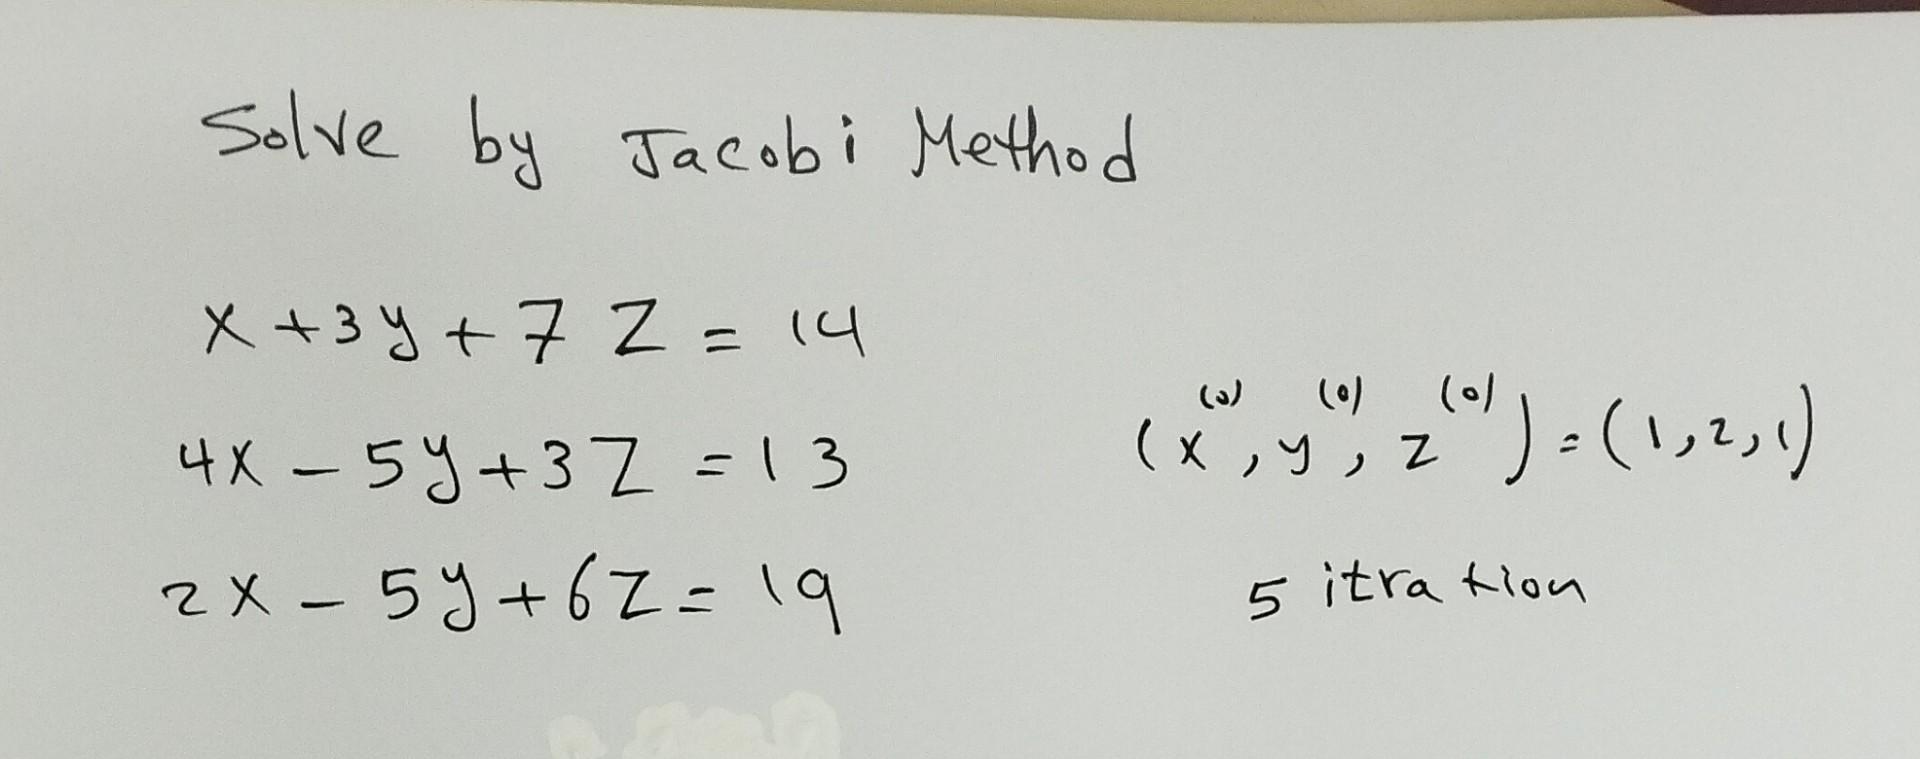 Solve by Jacobi Method
x + 3y + 7z = 14
4x - 5y + 3z = 13
(x^(0), y^(0), z^(0)) = (1,2,1)
2x - 5y + 6z = 19
5 itration